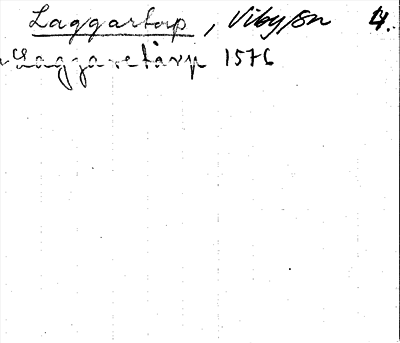 Laggartorp, Viby sn 4.
Laggaretårp 1576